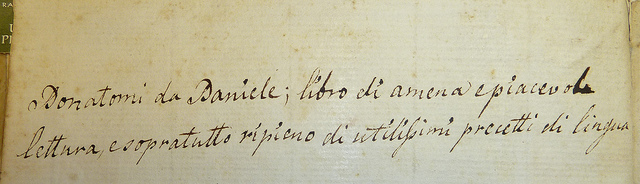 Donatomi da Daniele; libro di amena e piacevole
lettura, e sopratutto ripieno di utilissimi precetti di lingua